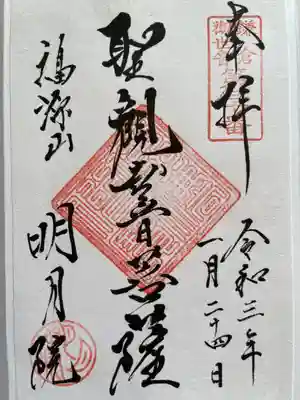 奉拝
令和三年
一月二十四日
聖観世音菩薩
福源山
明月院